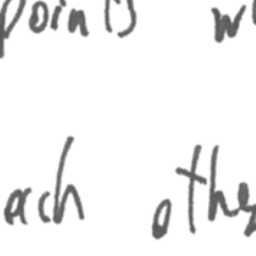 points w
each other